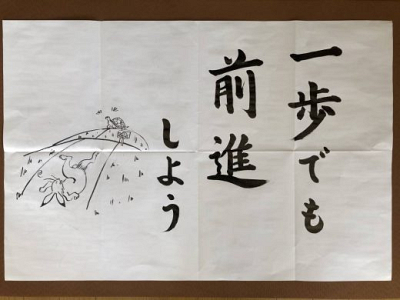 一歩でも
前進
しよう